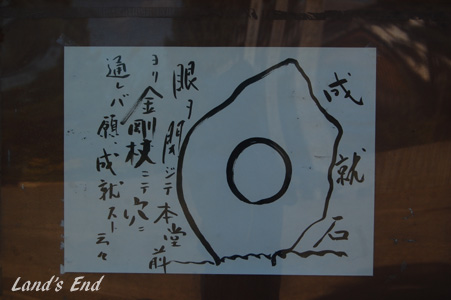 成就石
眼ヲ閉シテ本堂前
ヨリ金剛杖ニテ穴ニ
通レバ願、成就スト云々
Land's End